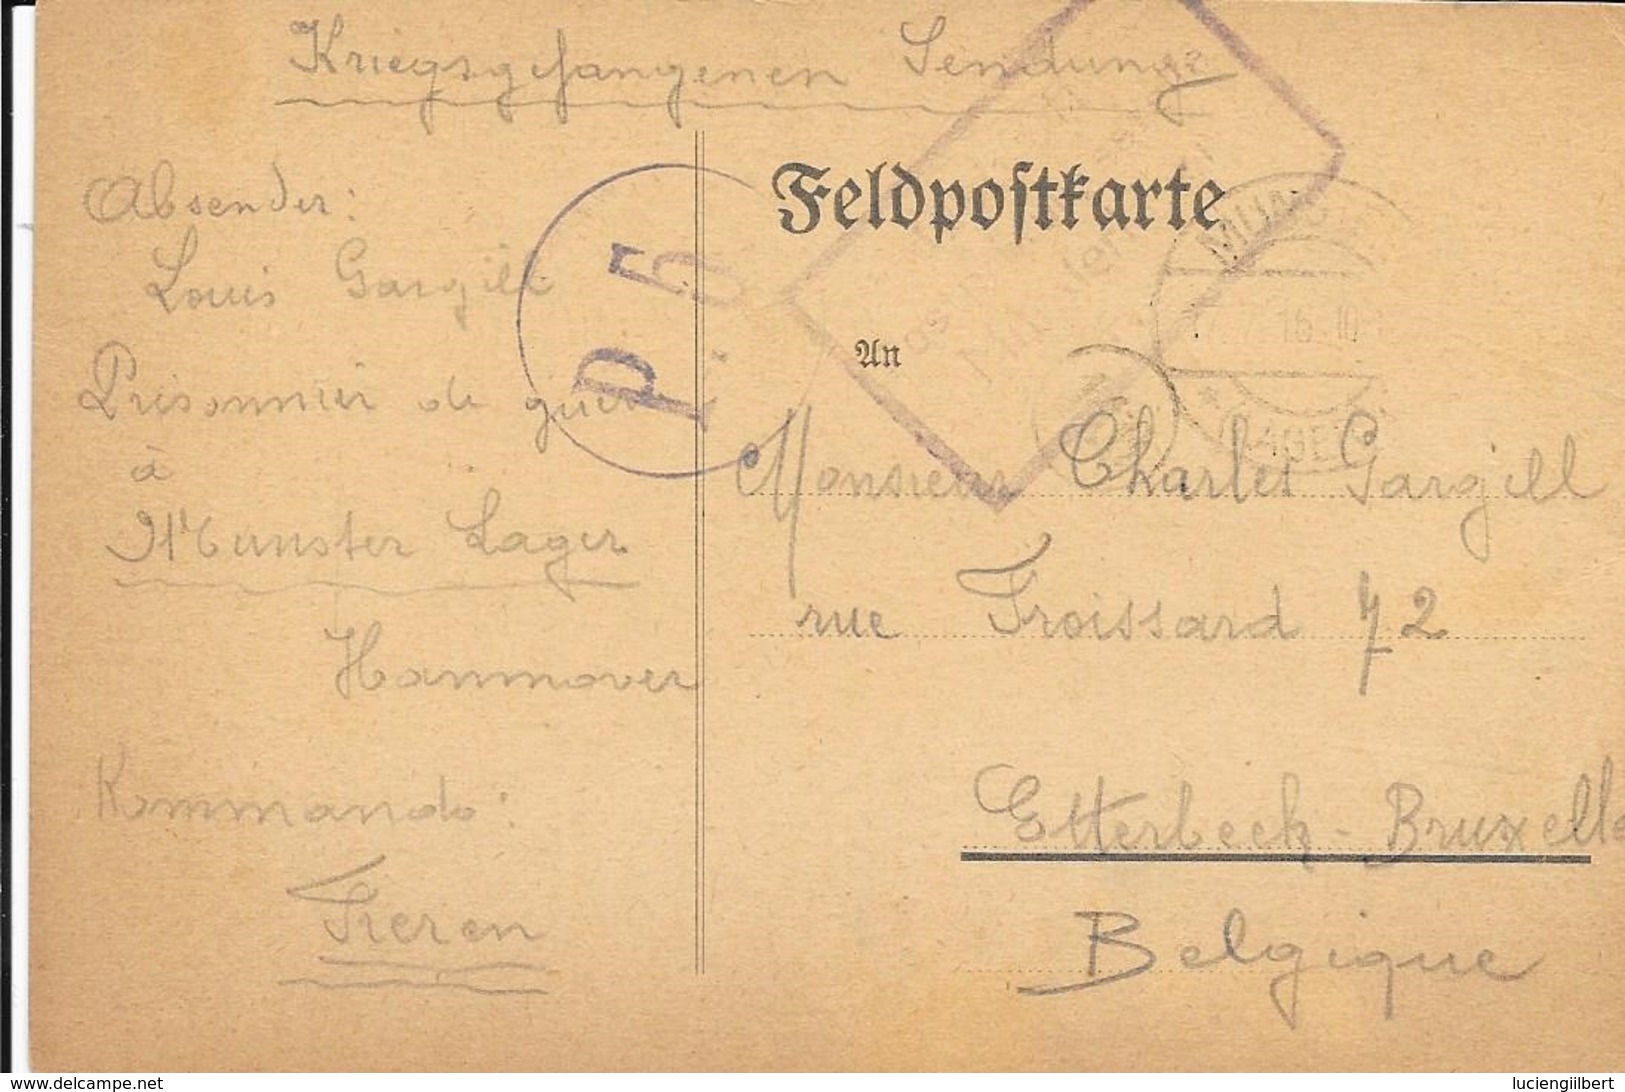 Kriegsgefangenen Sendung
Absender:
Louis Gargill
Prisonnier de guerre
à
Munster Lager
Hannover
Kommando:
Fieren
P. 5
Feldpostkarte
An
Monsieur Charles Gargill
rue Froissard 72
Etterbeek-Bruxelle
Belgique
www.delcampe.net
luciengilbert